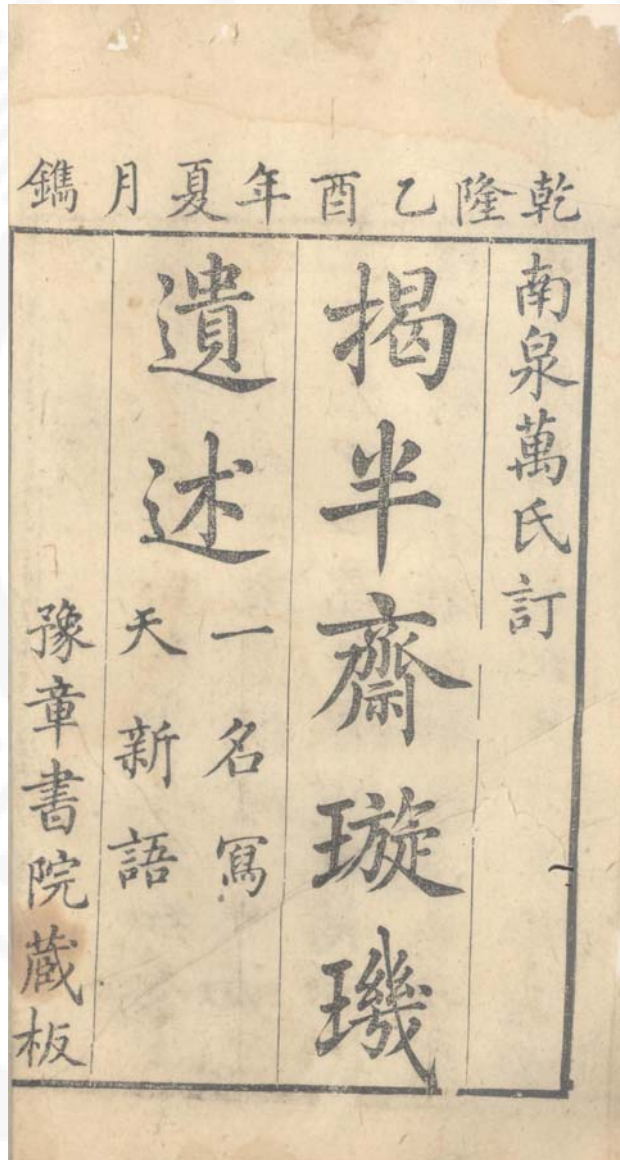 乾隆乙酉年夏月鐫
南泉萬氏訂
揭半齋璇璣
遺述
一名寫
天新語
豫章書院蔵板